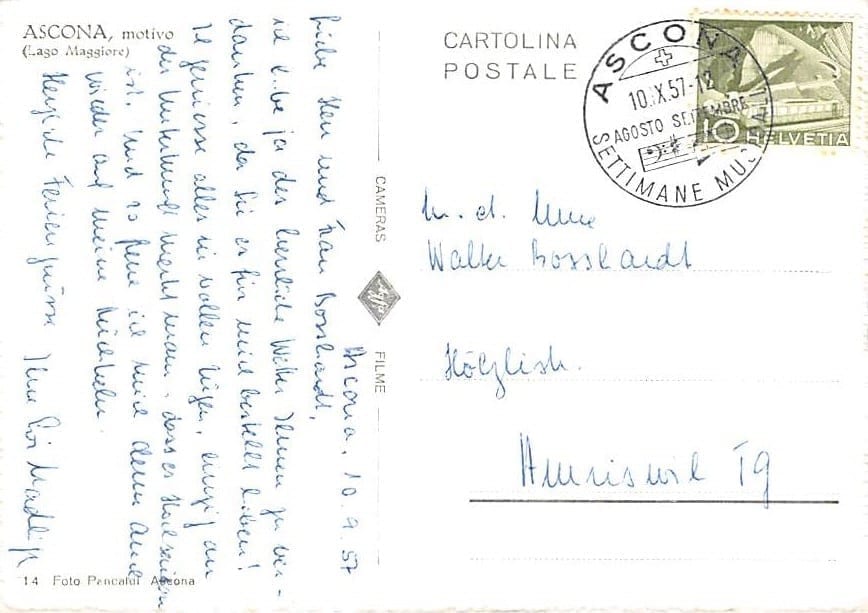 ASCONA, motivo
(Lago Maggiore)
CARTOLINA
POSTALE
ASCONA
10.IX.57-12
AGOSTO SETTEMBRE
SETTIMANE MUSICALI
10 HELVETIA
CAMERAS
Agfa
FILME
Ascona, 10.9.57
Liebe Herr und Frau Bosshardt,
ich habe ja das herrliche Wetter Ihnen zu ver-
danken, da Sie es für mich bestellt haben!
Ich geniesse alles in vollen Zügen, einzig an
der Unterkunft merkt man, dass es Hochsaison
ist. Und so freue ich mich denn auch
wieder auf meine Rückkehr.
Herzliche Feriengrüsse Ihre
Walter Bosshardt
Amriswil Tg
14 Foto Pancaldi Ascona